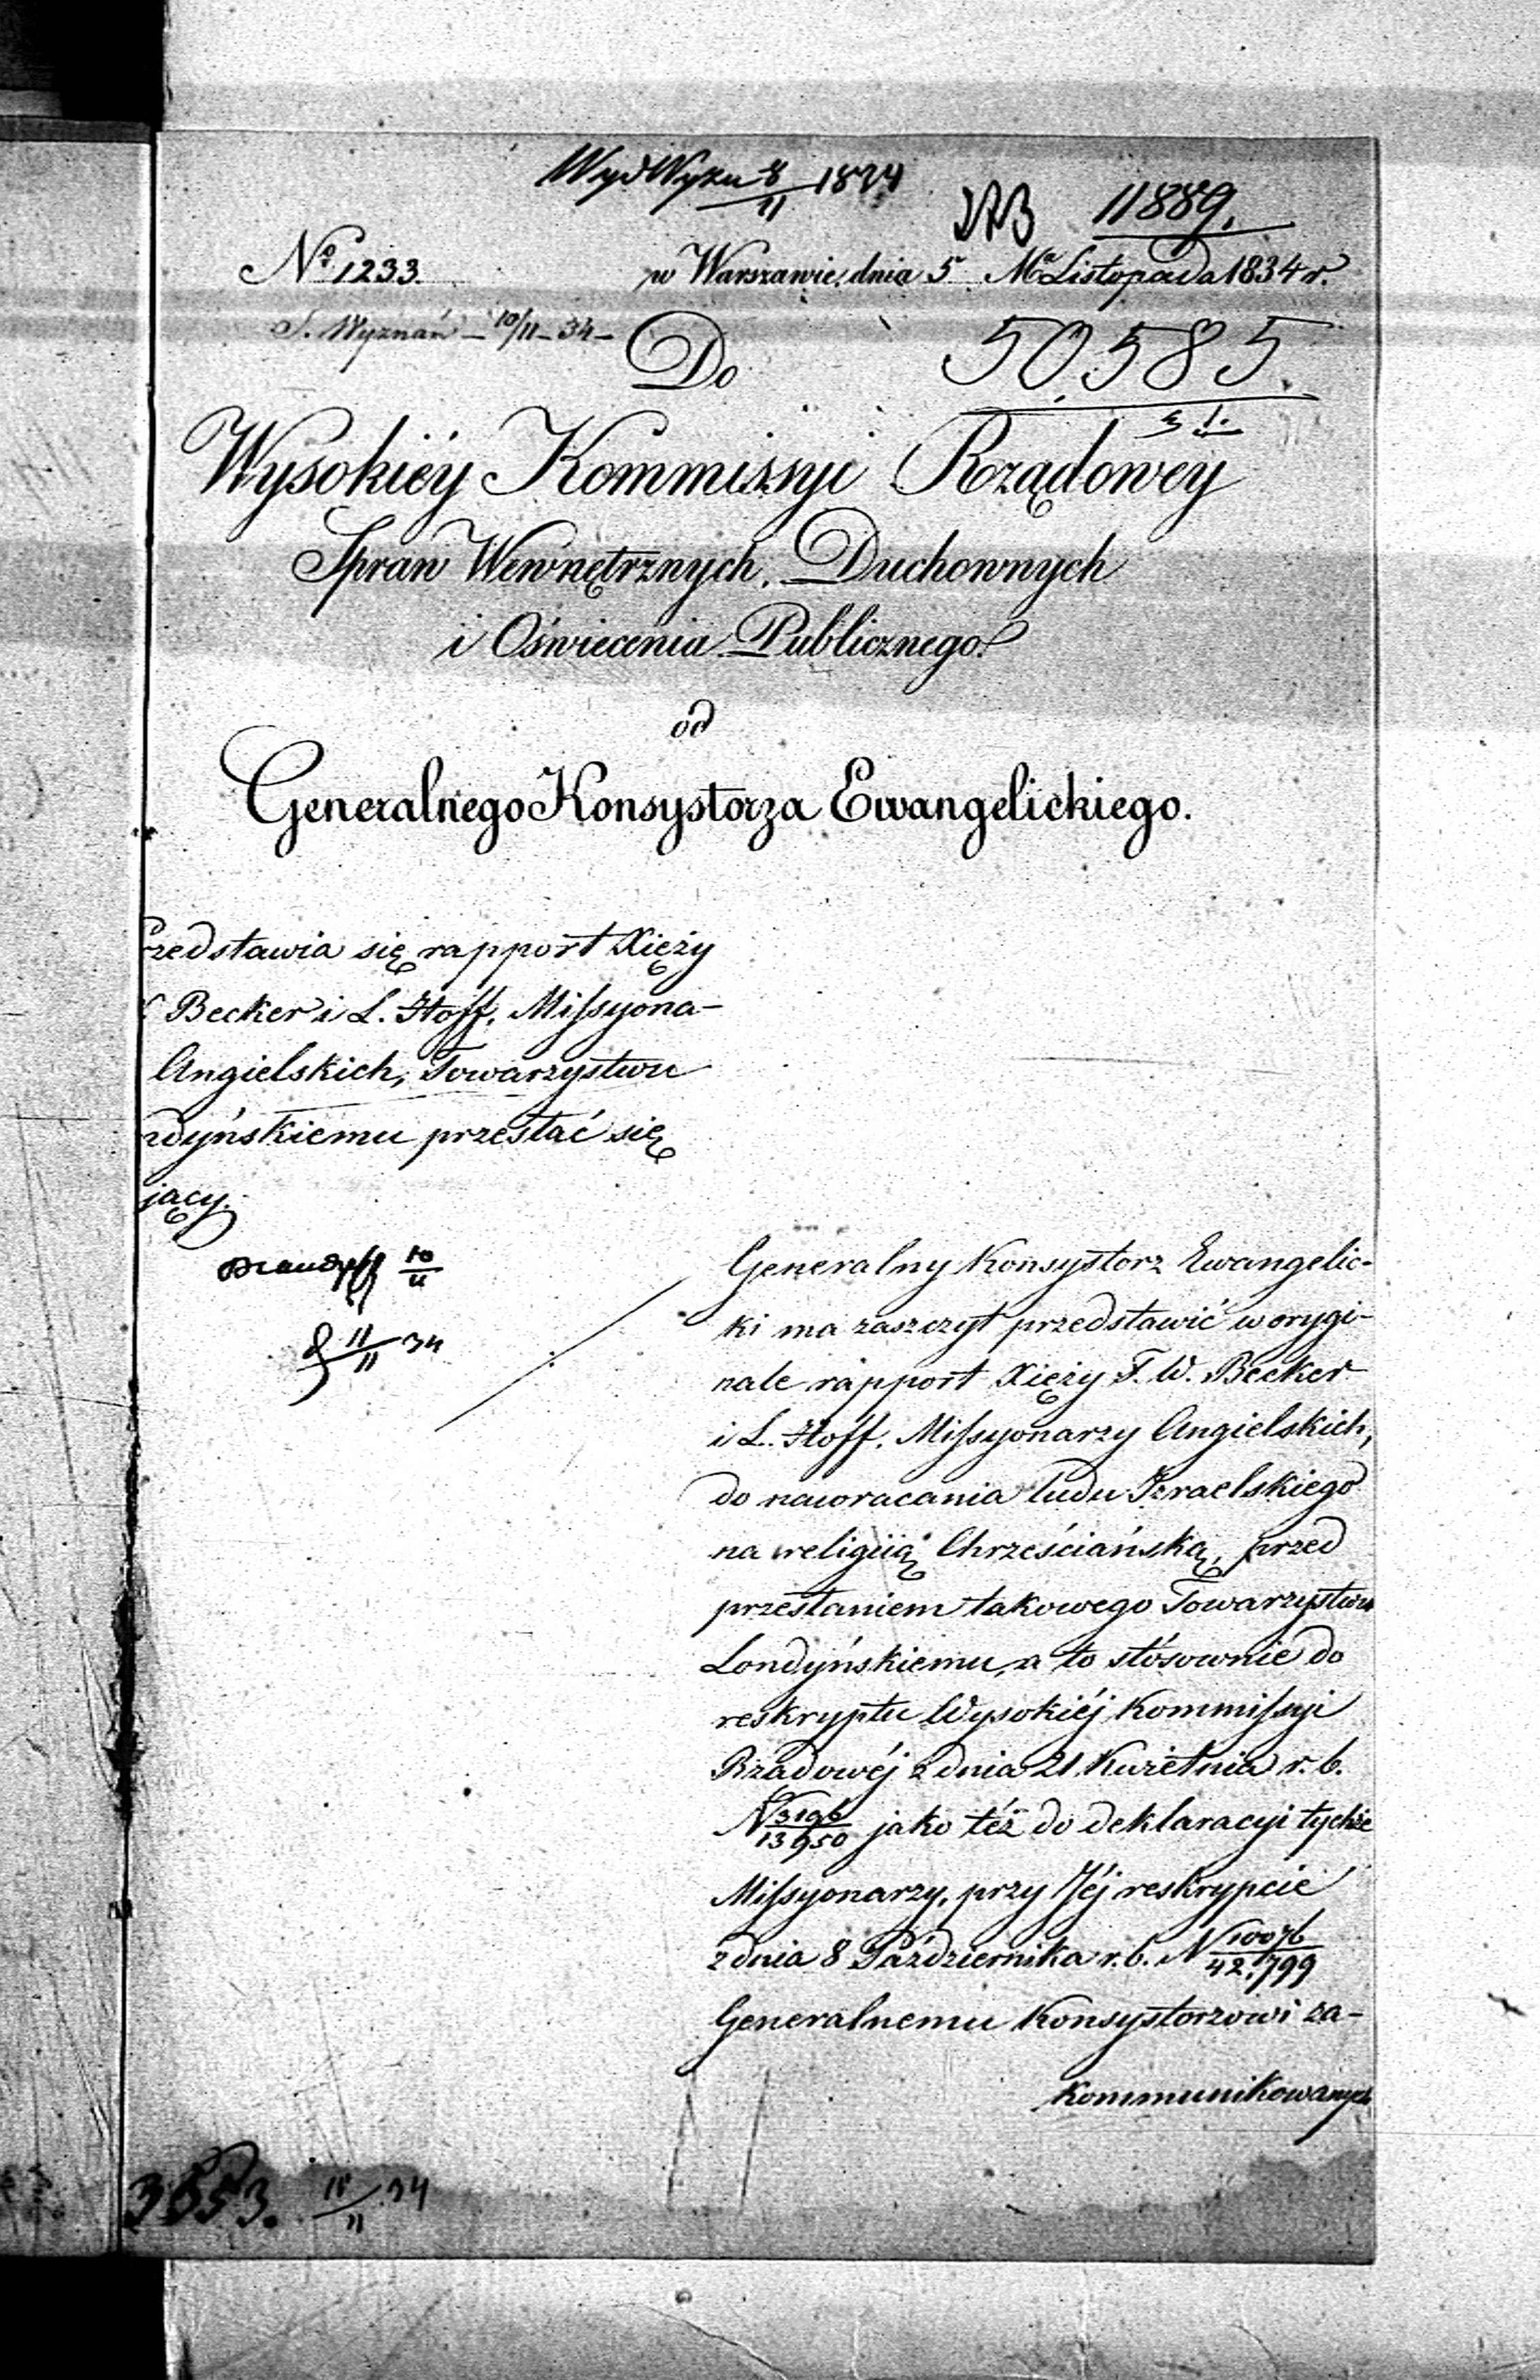 Wyd Wyzn 8/11 1834
11889.
No 1233. w Warszawie, dnia 5 Mca Listopada 1834 r.
S. Wyznań – 10/11 – 34 –
Do 50,585.
Wysokiéy Kommissyi Rządowey
Spraw Wewnętrznych, Duchownych
i Oświecenia Publicznego.
od
Generalnego Konsystorza Ewangelickiego.
rzedstawia się rapport Xięży
Becker i L. Hoff, Missyona-
Angielskich, Towarzystwu
dyńskiemu przesłać się
jący.
10/11
11/11 34
Generalny Konsystorz Ewangelic-
ki ma zaszczyt przedstawić w orygi-
nale rapport Xięży F. W. Becker
i L. Hoff, Missyonarzy Angielskich,
do nawracania ludu Izraelskiego
na religiią Chrześciańską, przed
przesłaniem takowego Towarzystwu
Londyńskiemu, a to stósownie do
reskryptu Wysokiéj Kommissyi
Rządowéj z dnia 21 Kwietnia r. b.
N 3196/13950 jako téż do deklaracyi tychże
Missyonarzy, przy Jéj reskrypcie
z dnia 8 Października r. b. N 10076/42,799
Generalnemu Konsystorzowi za-
kommunikowanych
3553. 11/11 34